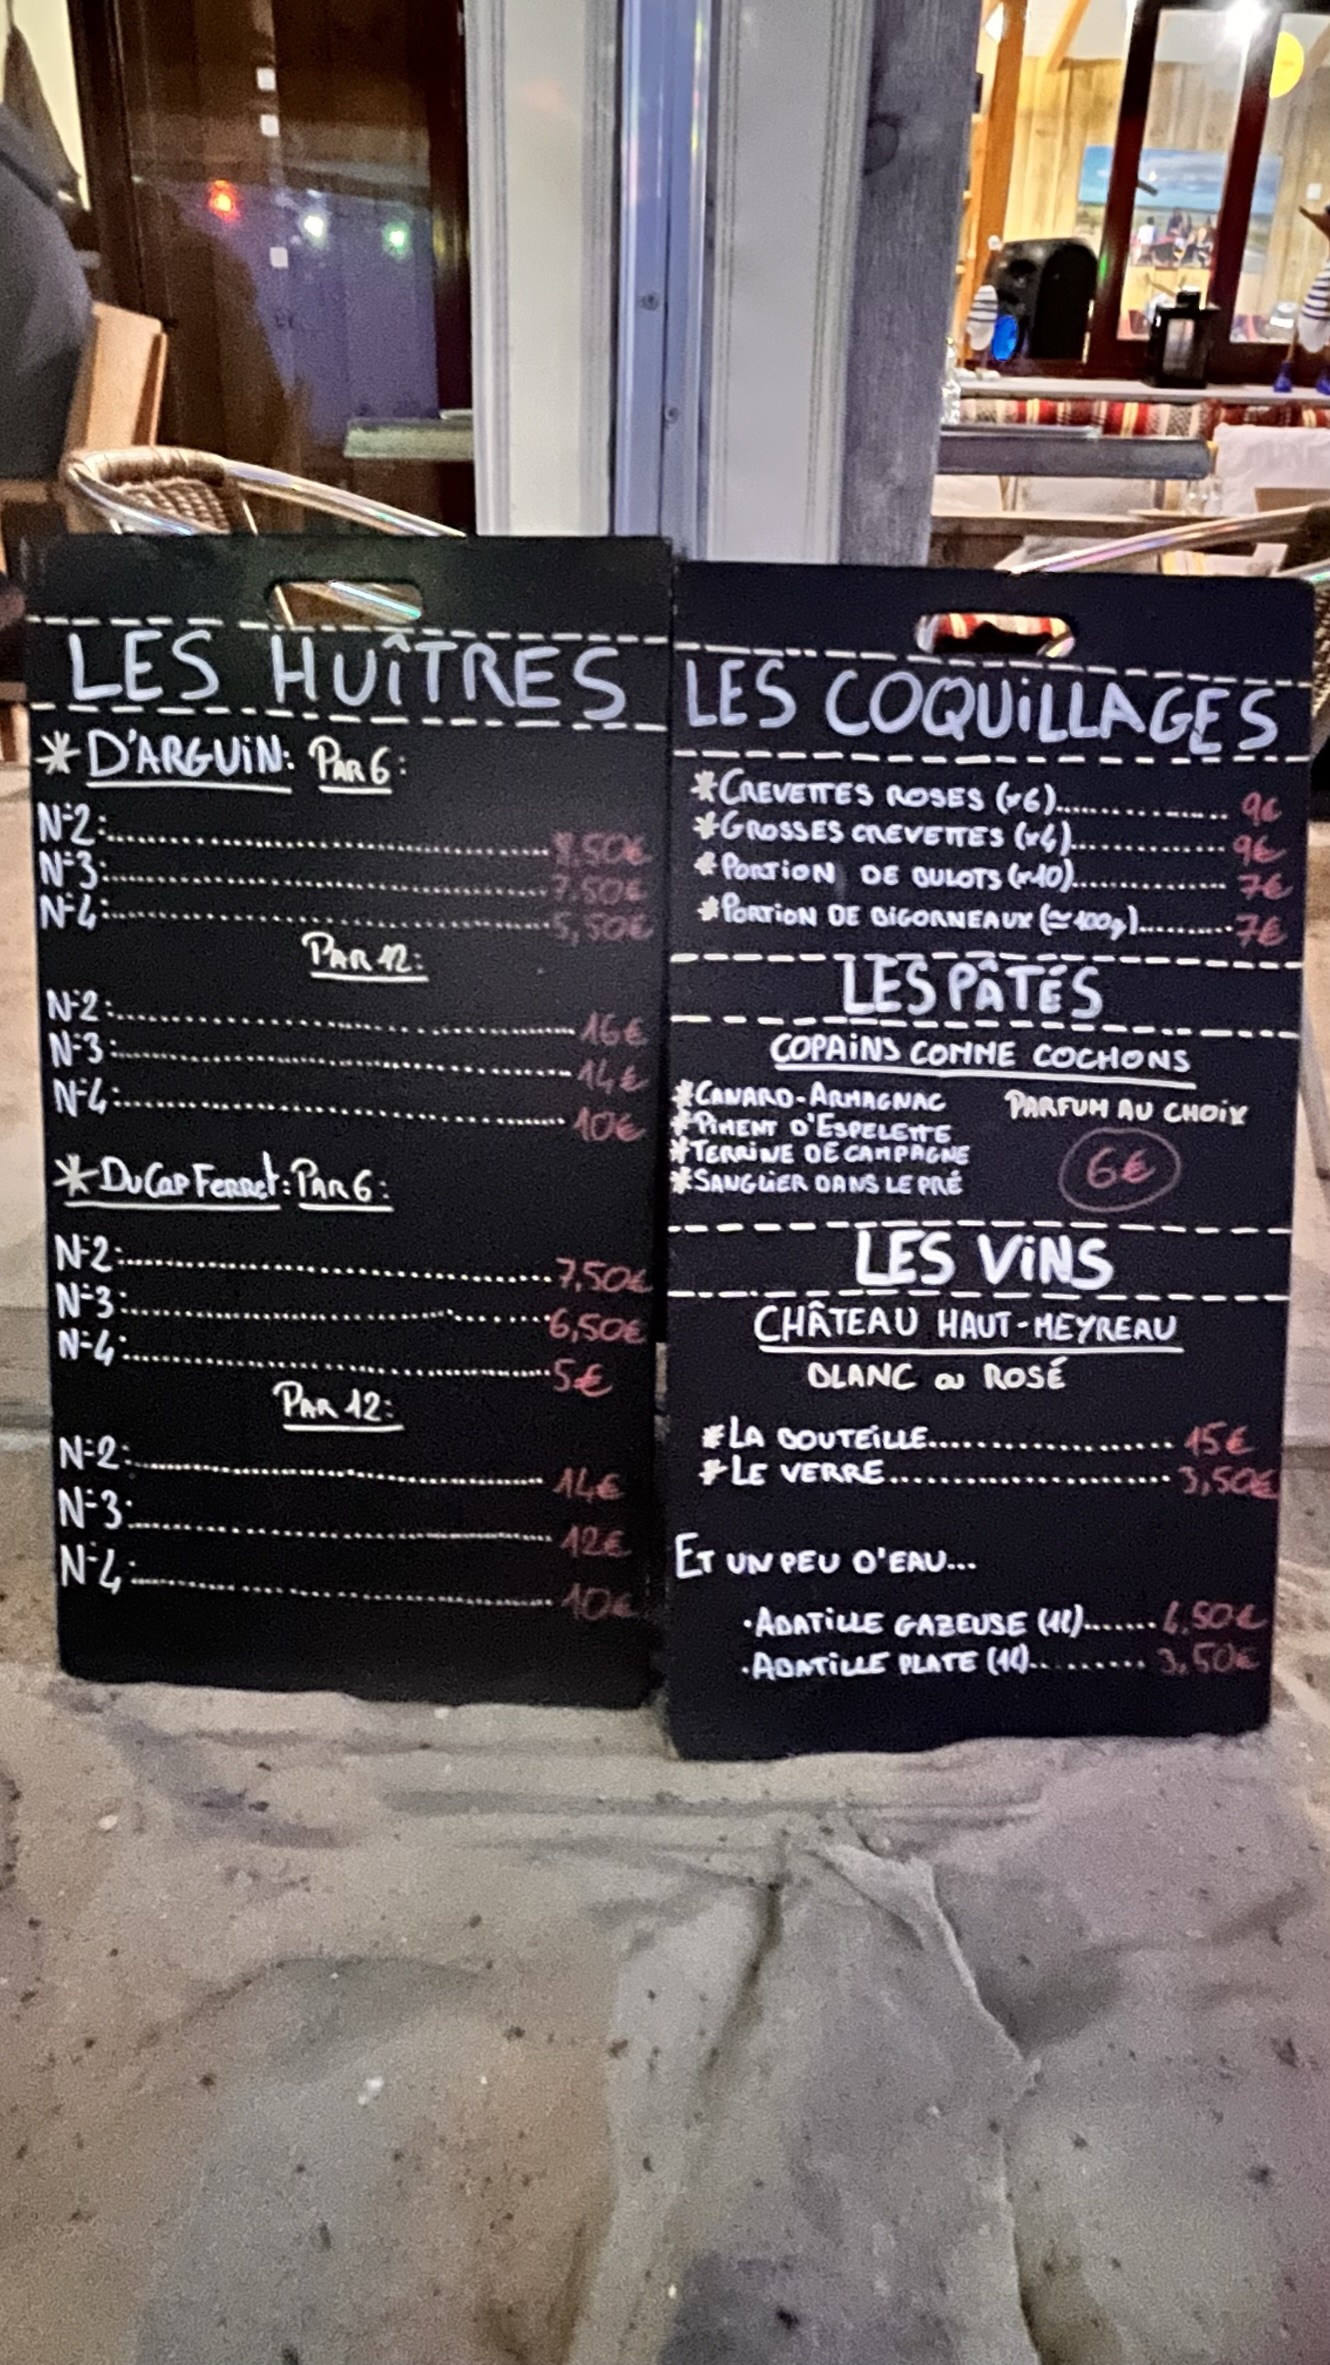 LES HUÎTRES
* D'ARGUIN: PAR 6:
N°2:..............8.50€
N°3:..............7.50€
N°4:..............5,50€
PAR 12:
N°2:..............16€
N°3:..............14€
N°4:..............10€
* Du Cap Ferret: PAR 6:
N°2:..............7,50€
N°3:..............6,50€
N°4:..............5€
PAR 12:
N°2:..............14€
N°3:..............12€
N°4:..............10€
LES COQUILLAGES
* CREVETTES ROSES (x6)..............9€
* GROSSES CREVETTES (x4)..............9€
* PORTION DE BULOTS (x10)..............7€
* PORTION DE BIGORNEAUX (≃100g)..............7€
LES PÂTÉS
COPAINS COMME COCHONS
* CANARD-ARMAGNAC
* PIMENT D'ESPELETTE
* TERRINE DE CAMPAGNE
* SANGLIER DANS LE PRÉ
PARFUM AU CHOIX
6€
LES VINS
CHÂTEAU HAUT-MEYREAU
BLANC ou ROSÉ
* LA BOUTEILLE..............15€
* LE VERRE..............3,50€
ET UN PEU D'EAU...
· ABATILLE GAZEUSE (1l)........4,50€
· ABATILLE PLATE (1l)..........3,50€